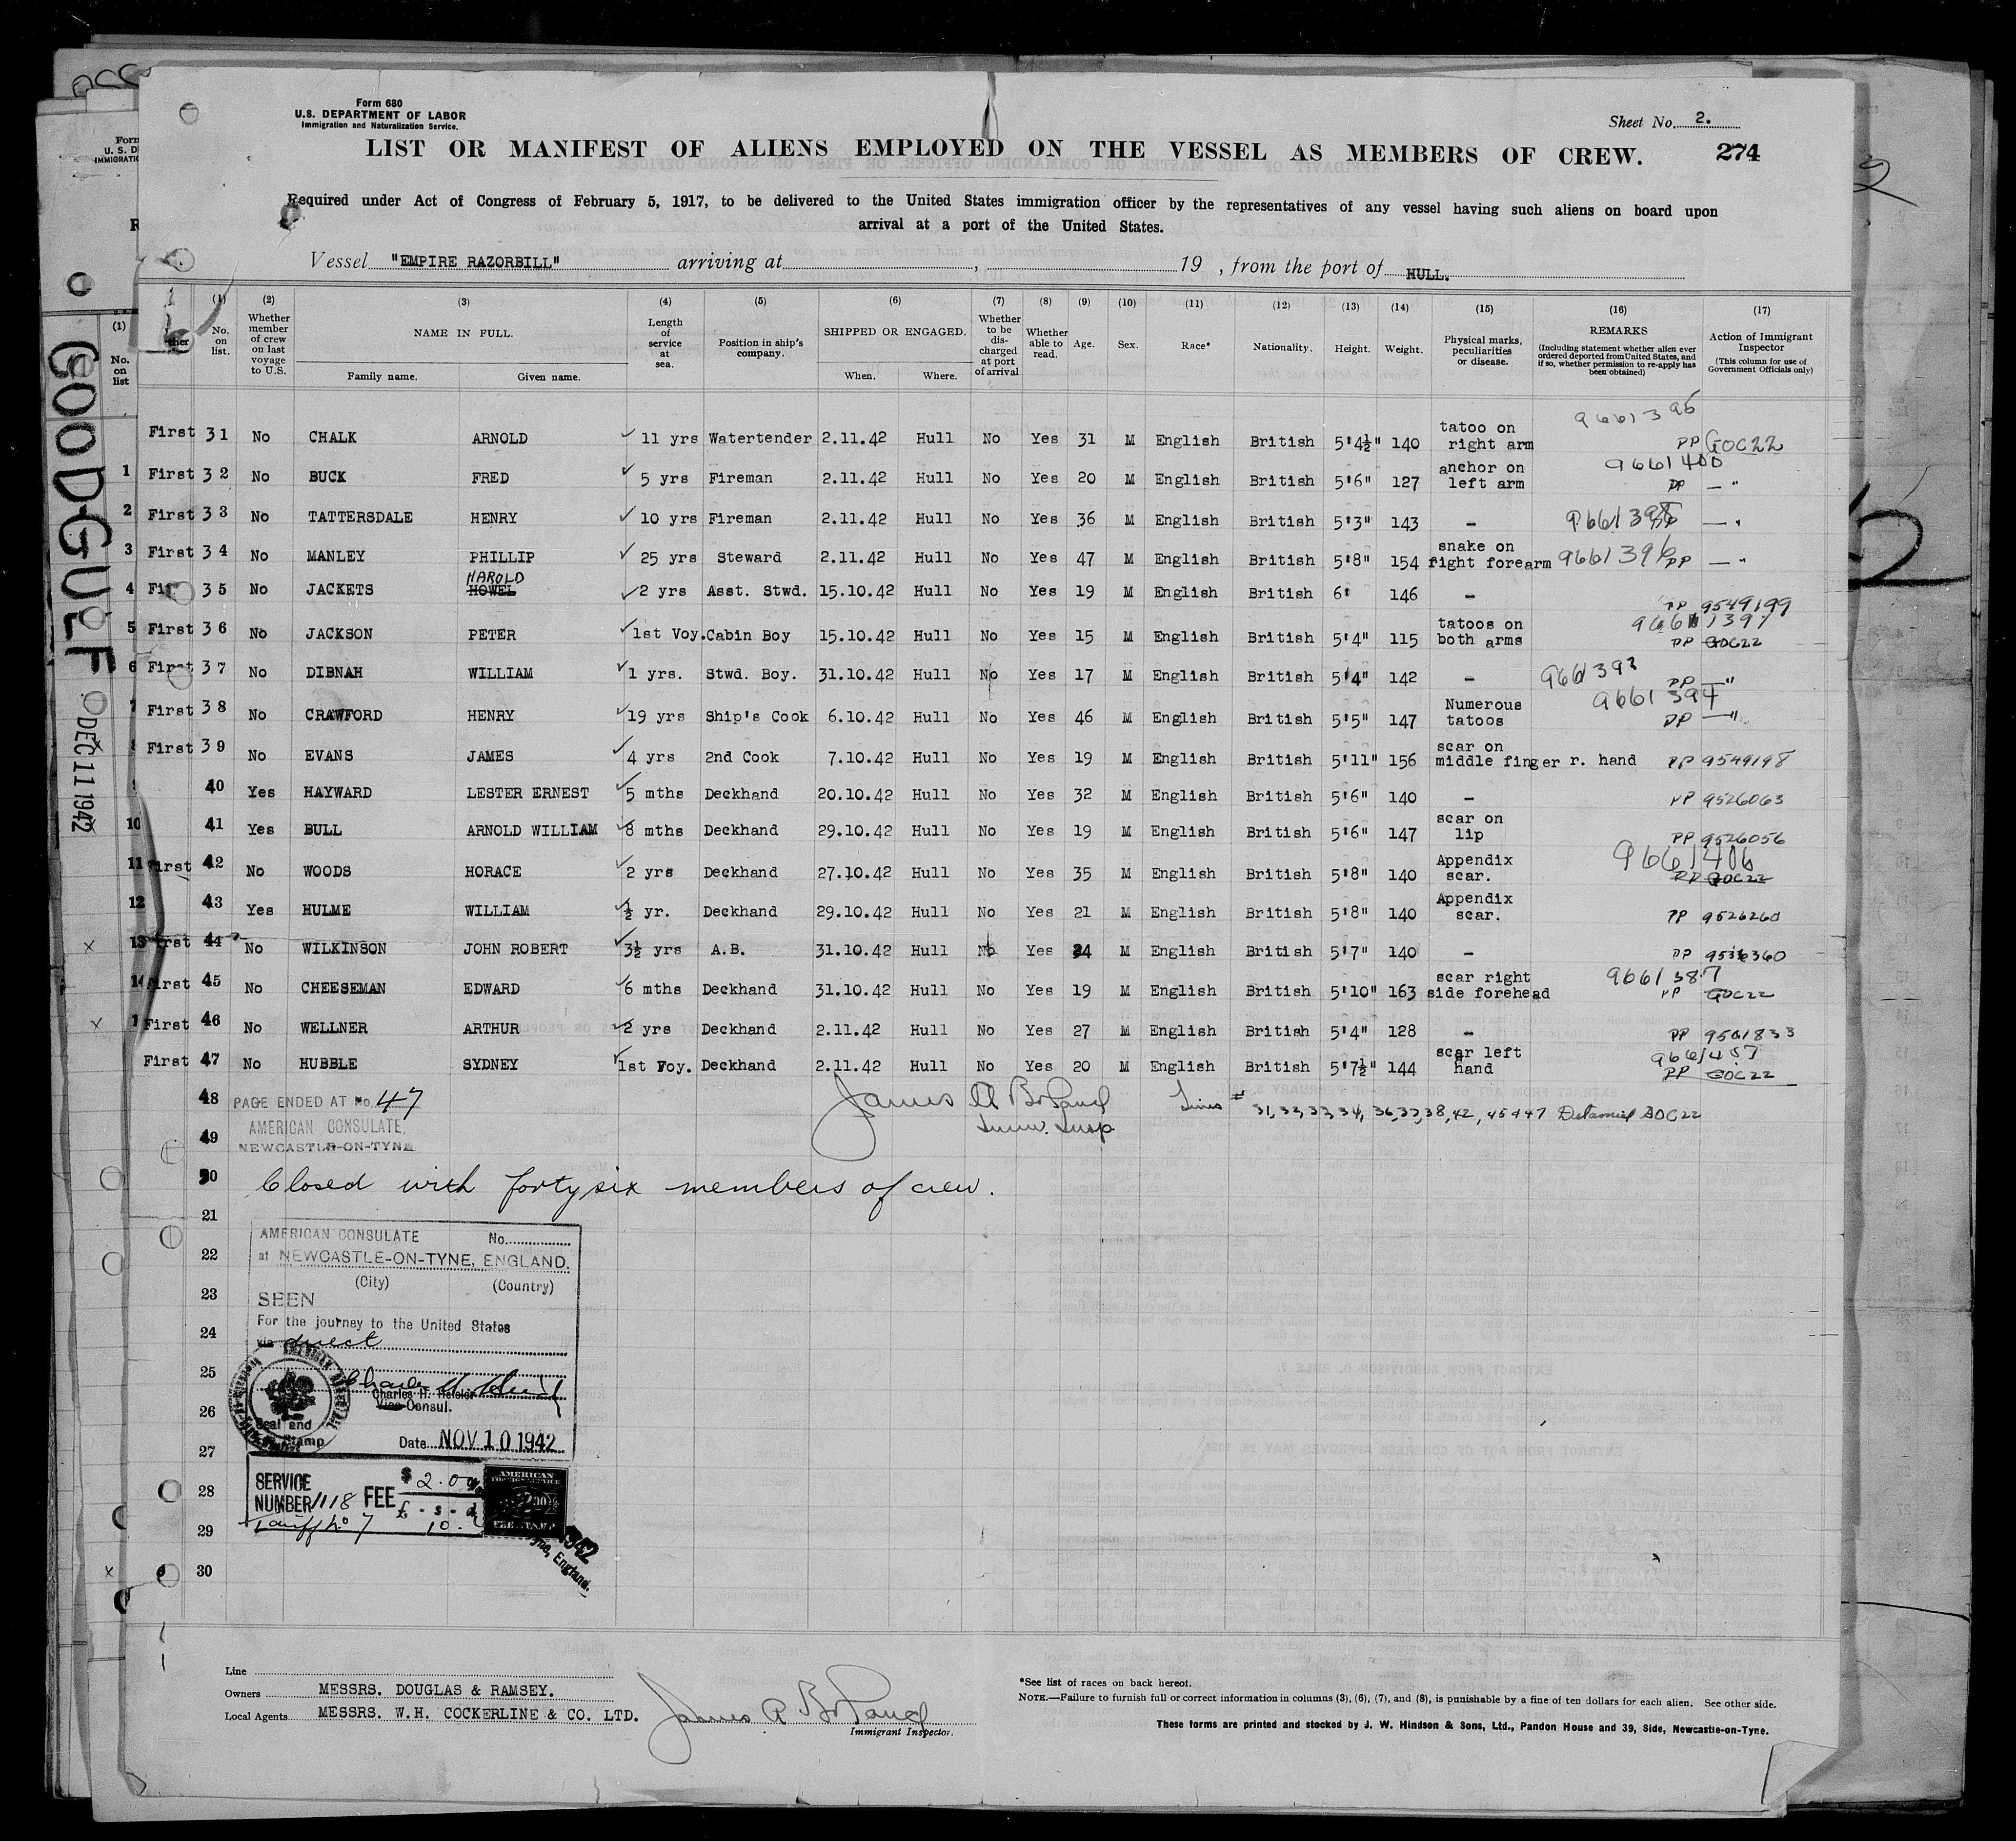 Form 680
U.S. DEPARTMENT OF LABOR
Immigration and Naturalization Service.
Sheet No. 2.
LIST OR MANIFEST OF ALIENS EMPLOYED ON THE VESSEL AS MEMBERS OF CREW. 274
Required under Act of Congress of February 5, 1917, to be delivered to the United States immigration officer by the representatives of any vessel having such aliens on board upon
arrival at a port of the United States.
Vessel "EMPIRE RAZORBILL" arriving at , 19 , from the port of HULL.
(1) (2) (3) (4) (5) (6) (7) (8) (9) (10) (11) (12) (13) (14) (15) (16) (17)
No. on list. Whether member of crew on last voyage to U.S. NAME IN FULL. Family name. Given name. Length of service at sea. Position in ship's company. SHIPPED OR ENGAGED. When. Where. Whether to be discharged at port of arrival Whether able to read. Age. Sex. Race* Nationality. Height. Weight. Physical marks, peculiarities or disease. REMARKS (Including statement whether alien ever ordered deported from United States, and if so, whether permission to re-apply has been obtained) Action of Immigrant Inspector (This column for use of Government Officials only)
First 31 No CHALK ARNOLD ✓ 11 yrs Watertender 2.11.42 Hull No Yes 31 M English British 5'4½" 140 tatoo on right arm PP GOC22
First 32 No BUCK FRED ✓ 5 yrs Fireman 2.11.42 Hull No Yes 20 M English British 5'6" 127 anchor on left arm 9661400 PP — "
First 33 No TATTERSDALE HENRY ✓ 10 yrs Fireman 2.11.42 Hull No Yes 36 M English British 5'3" 143 - PP — "
First 34 No MANLEY PHILLIP ✓ 25 yrs Steward 2.11.42 Hull No Yes 47 M English British 5'8" 154 snake on right forearm 9661396 PP — "
35 No JACKETS HAROLD HOWEL ✓ 2 yrs Asst. Stwd. 15.10.42 Hull No Yes 19 M English British 6' 146 - PP 9549199
First 36 No JACKSON PETER ✓ 1st Voy. Cabin Boy 15.10.42 Hull No Yes 15 M English British 5'4" 115 tatoos on both arms PP GOC22
First 37 No DIBNAH WILLIAM ✓ 1 yrs. Stwd. Boy. 31.10.42 Hull No Yes 17 M English British 5'4" 142 - PP — "
First 38 No CRAWFORD HENRY ✓ 19 yrs Ship's Cook 6.10.42 Hull No Yes 46 M English British 5'5" 147 Numerous tatoos 9661394 PP — "
First 39 No EVANS JAMES ✓ 4 yrs 2nd Cook 7.10.42 Hull No Yes 19 M English British 5'11" 156 scar on middle finger r. hand PP 9549198
40 Yes HAYWARD LESTER ERNEST ✓ 5 mths Deckhand 20.10.42 Hull No Yes 32 M English British 5'6" 140 - PP 9526063
41 Yes BULL ARNOLD WILLIAM ✓ 8 mths Deckhand 29.10.42 Hull No Yes 19 M English British 5'6" 147 scar on lip PP 9526056
First 42 No WOODS HORACE ✓ 2 yrs Deckhand 27.10.42 Hull No Yes 35 M English British 5'8" 140 Appendix scar. 9661406 PP GOC22
43 Yes HULME WILLIAM ✓ ½ yr. Deckhand 29.10.42 Hull No Yes 21 M English British 5'8" 140 Appendix scar. PP 9526260
First 44 No WILKINSON JOHN ROBERT ✓ 3½ yrs A.B. 31.10.42 Hull No Yes 24 M English British 5'7" 140 - PP
First 45 No CHEESEMAN EDWARD ✓ 6 mths Deckhand 31.10.42 Hull No Yes 19 M English British 5'10" 163 scar right side forehead 9661387 PP GOC22
First 46 No WELLNER ARTHUR ✓ 2 yrs Deckhand 2.11.42 Hull No Yes 27 M English British 5'4" 128 - PP 9501833
First 47 No HUBBLE SYDNEY ✓ 1st Voy. Deckhand 2.11.42 Hull No Yes 20 M English British 5'7½" 144 scar left hand PP GOC22
48 PAGE ENDED AT No. 47 James A Boland Lines # 31, 32, 33, 34, 36, 37, 38, 42, 45 & 47 Detained GOC22
AMERICAN CONSULATE, Imm. Insp.
49
NEWCASTLE-ON-TYNE
50 Closed with forty six members of crew.
21
AMERICAN CONSULATE No.
22 at NEWCASTLE-ON-TYNE, ENGLAND.
(City) (Country)
23 SEEN
For the journey to the United States
24 via direct
25
Charles H. Heisler
Vice Consul.
26 Seal and
Stamp
Date NOV 10 1942
27
SERVICE
NUMBER 1118 FEE $ 2.00
28
£ - s - d
Tariff No 7 10.
AMERICAN
FOREIGN SERVICE
FEE STAMP
29
1942
Tyne, England.
30
Line
Owners MESSRS. DOUGLAS & RAMSEY.
Local Agents MESSRS. W.H. COCKERLINE & CO. LTD.
James A Boland
Immigrant Inspector.
*See list of races on back hereof.
NOTE.—Failure to furnish full or correct information in columns (3), (6), (7), and (8), is punishable by a fine of ten dollars for each alien. See other side.
These forms are printed and stocked by J. W. Hindson & Sons, Ltd., Pandon House and 39, Side, Newcastle-on-Tyne.
GOOD GULF
DEC 11 1942